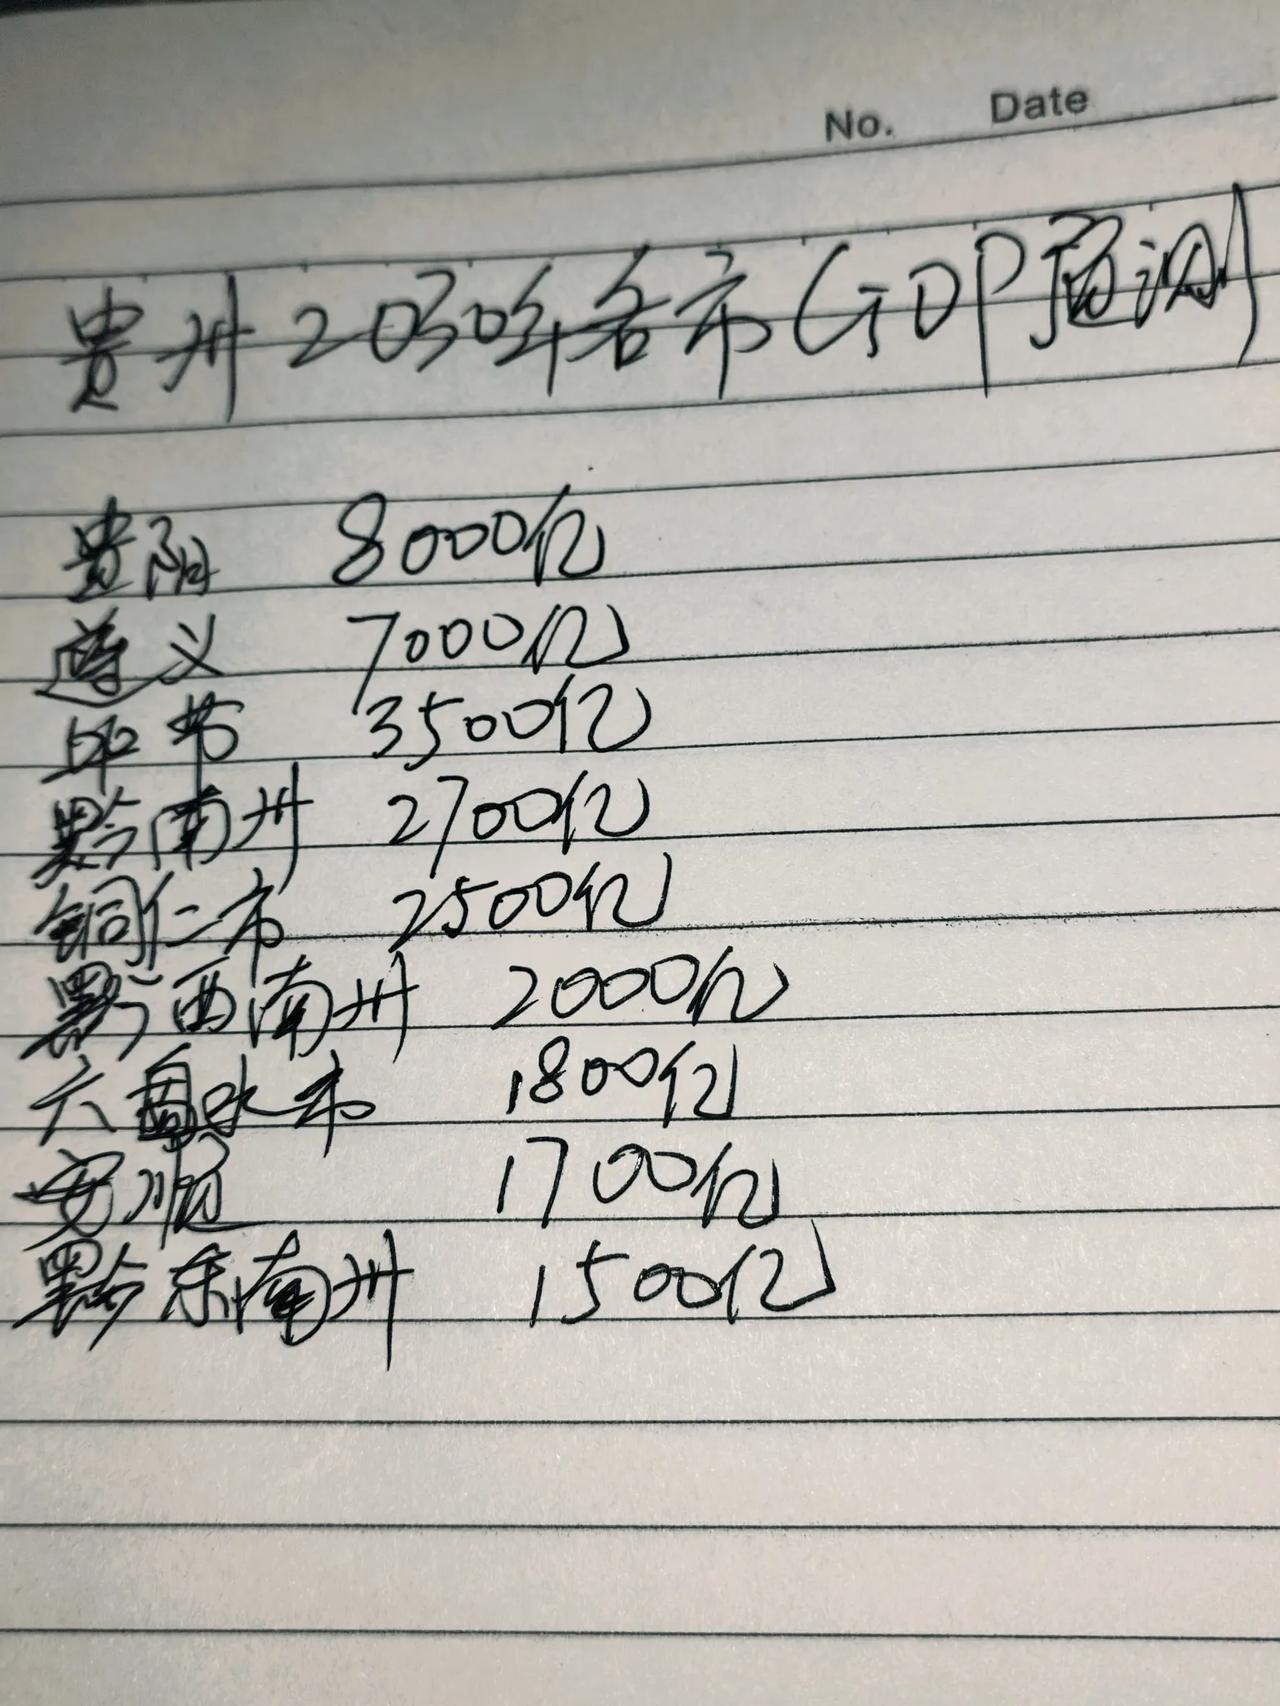 No. Date
贵州2030年各市GDP预测
贵阳 8000亿
遵义 7000亿
毕节 3500亿
黔南州 2700亿
铜仁市 2500亿
黔西南州 2000亿
六盘水市 1800亿
安顺 1700亿
黔东南州 1500亿